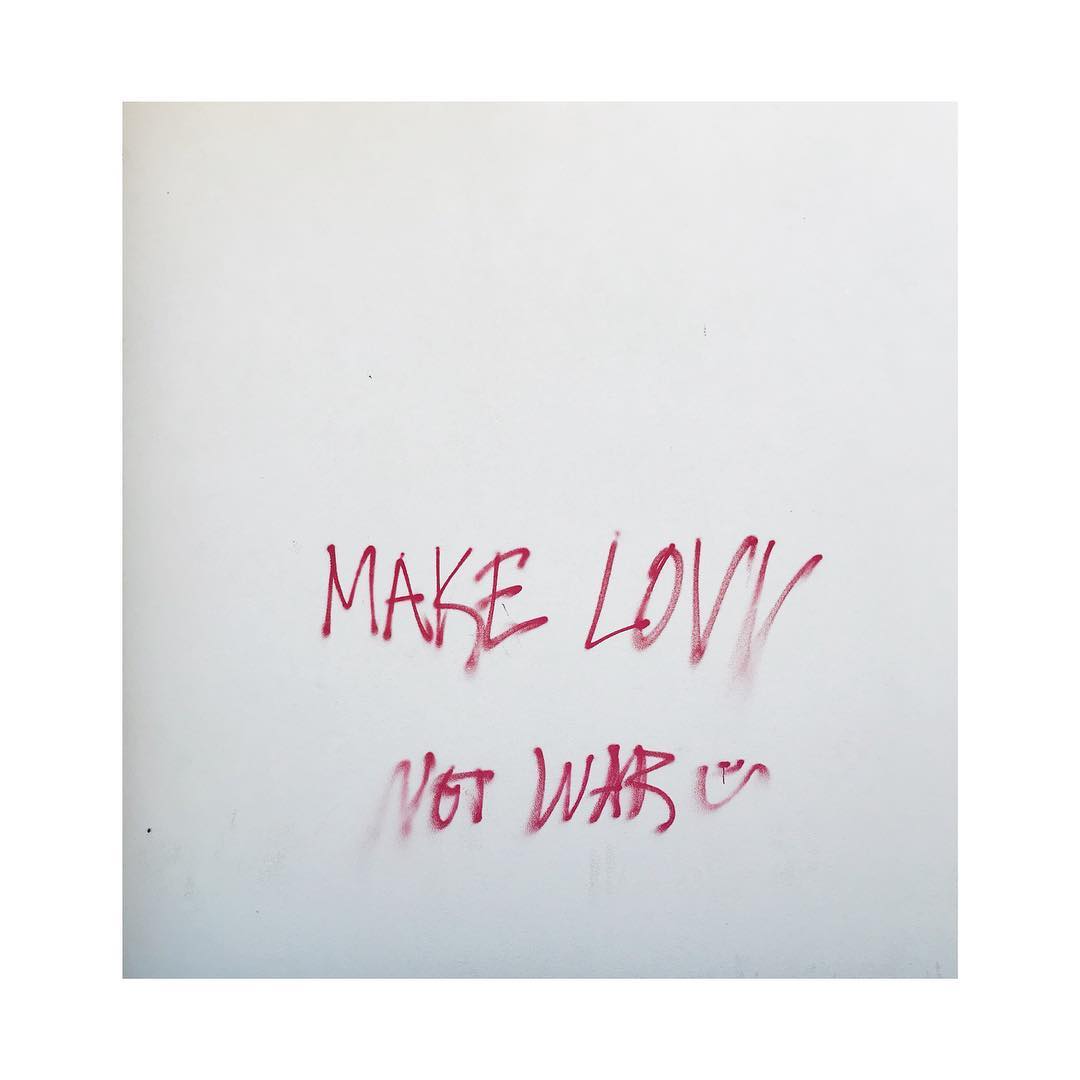 MAKE LOVV
NOT WAR